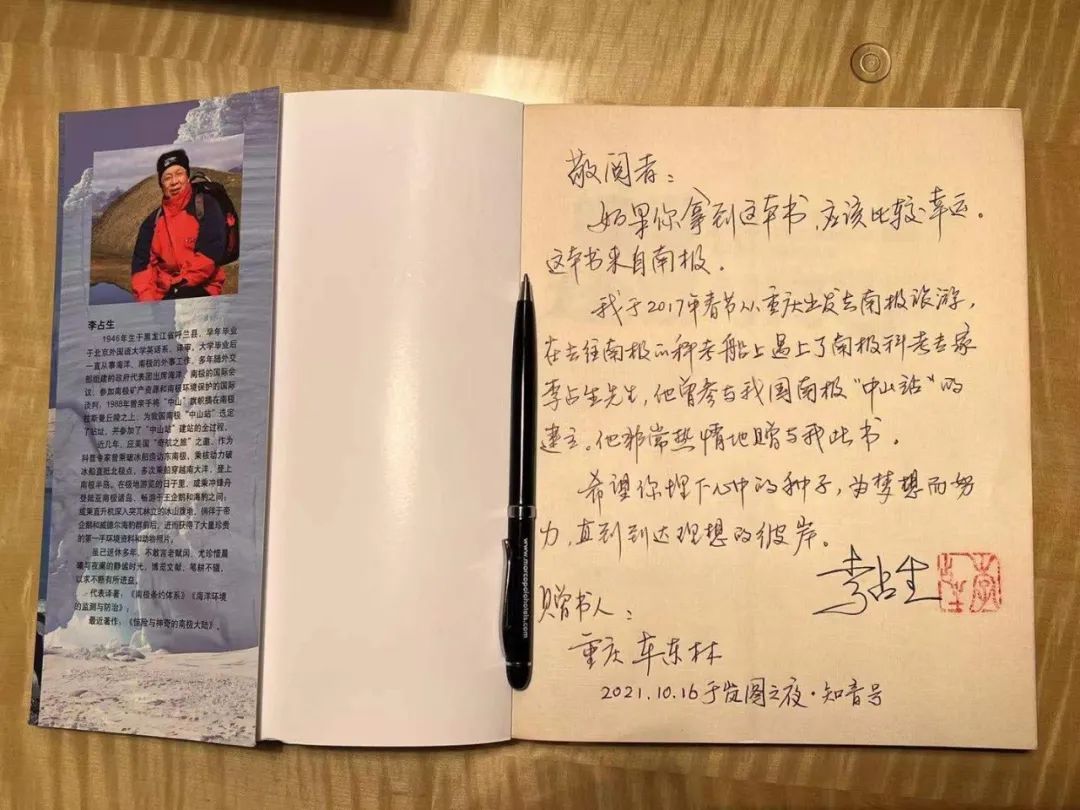 李占生
1946年生于黑龙江省呼兰县，早年毕业
于北京外国语大学英语系，译审。大学毕业后
一直从事海洋、南极的外事工作，多年随外交
部组建的政府代表团出席海洋、南极的国际会
议，参加南极矿产资源和南极环境保护的国际
谈判，1988年曾亲手将“中山”旗帜插在南极
拉斯曼丘陵之上，为我国南极“中山站”选定
了站址，并参加了“中山站”建站的全过程。
近几年，应美国“夸克之旅”之邀，作为
科普专家曾乘破冰船造访东南极，乘核动力破
冰船直抵北极点，多次乘船穿越南大洋，登上
南极半岛。在极地游览的日子里，或乘冲锋舟
登陆亚南极诸岛，畅游于王企鹅和海豹之间；
或乘直升机深入突兀林立的冰山腹地，徜徉于帝
企鹅和威德尔海豹群前后，进而获得了大量珍贵
的第一手环境资料和动物照片。
虽已退休多年，不敢言老赋闲，尤珍惜晨
曦与夜阑的静谧时光，博览文献，笔耕不辍，
以求不断有所进益。
代表译著：《南极条约体系》《海洋环境
的监测与防治》；
最近著作：《惊险与神奇的南极大陆》。
敬阅者：
如果你拿到这本书，应该比较幸运。
这本书来自南极。
我于2017年春节从重庆出发去南极旅游，
在去往南极的科考船上遇上了南极科考专家
李占生先生，他曾参与我国南极“中山站”的
建立。他非常热情地赠与我此书。
希望你埋下心中的种子，为梦想而努
力，直到到达理想的彼岸。
李占生
赠书人：
重庆 车东林
2021.10.16于岚图之夜·知音号
www.marcopolohotels.com